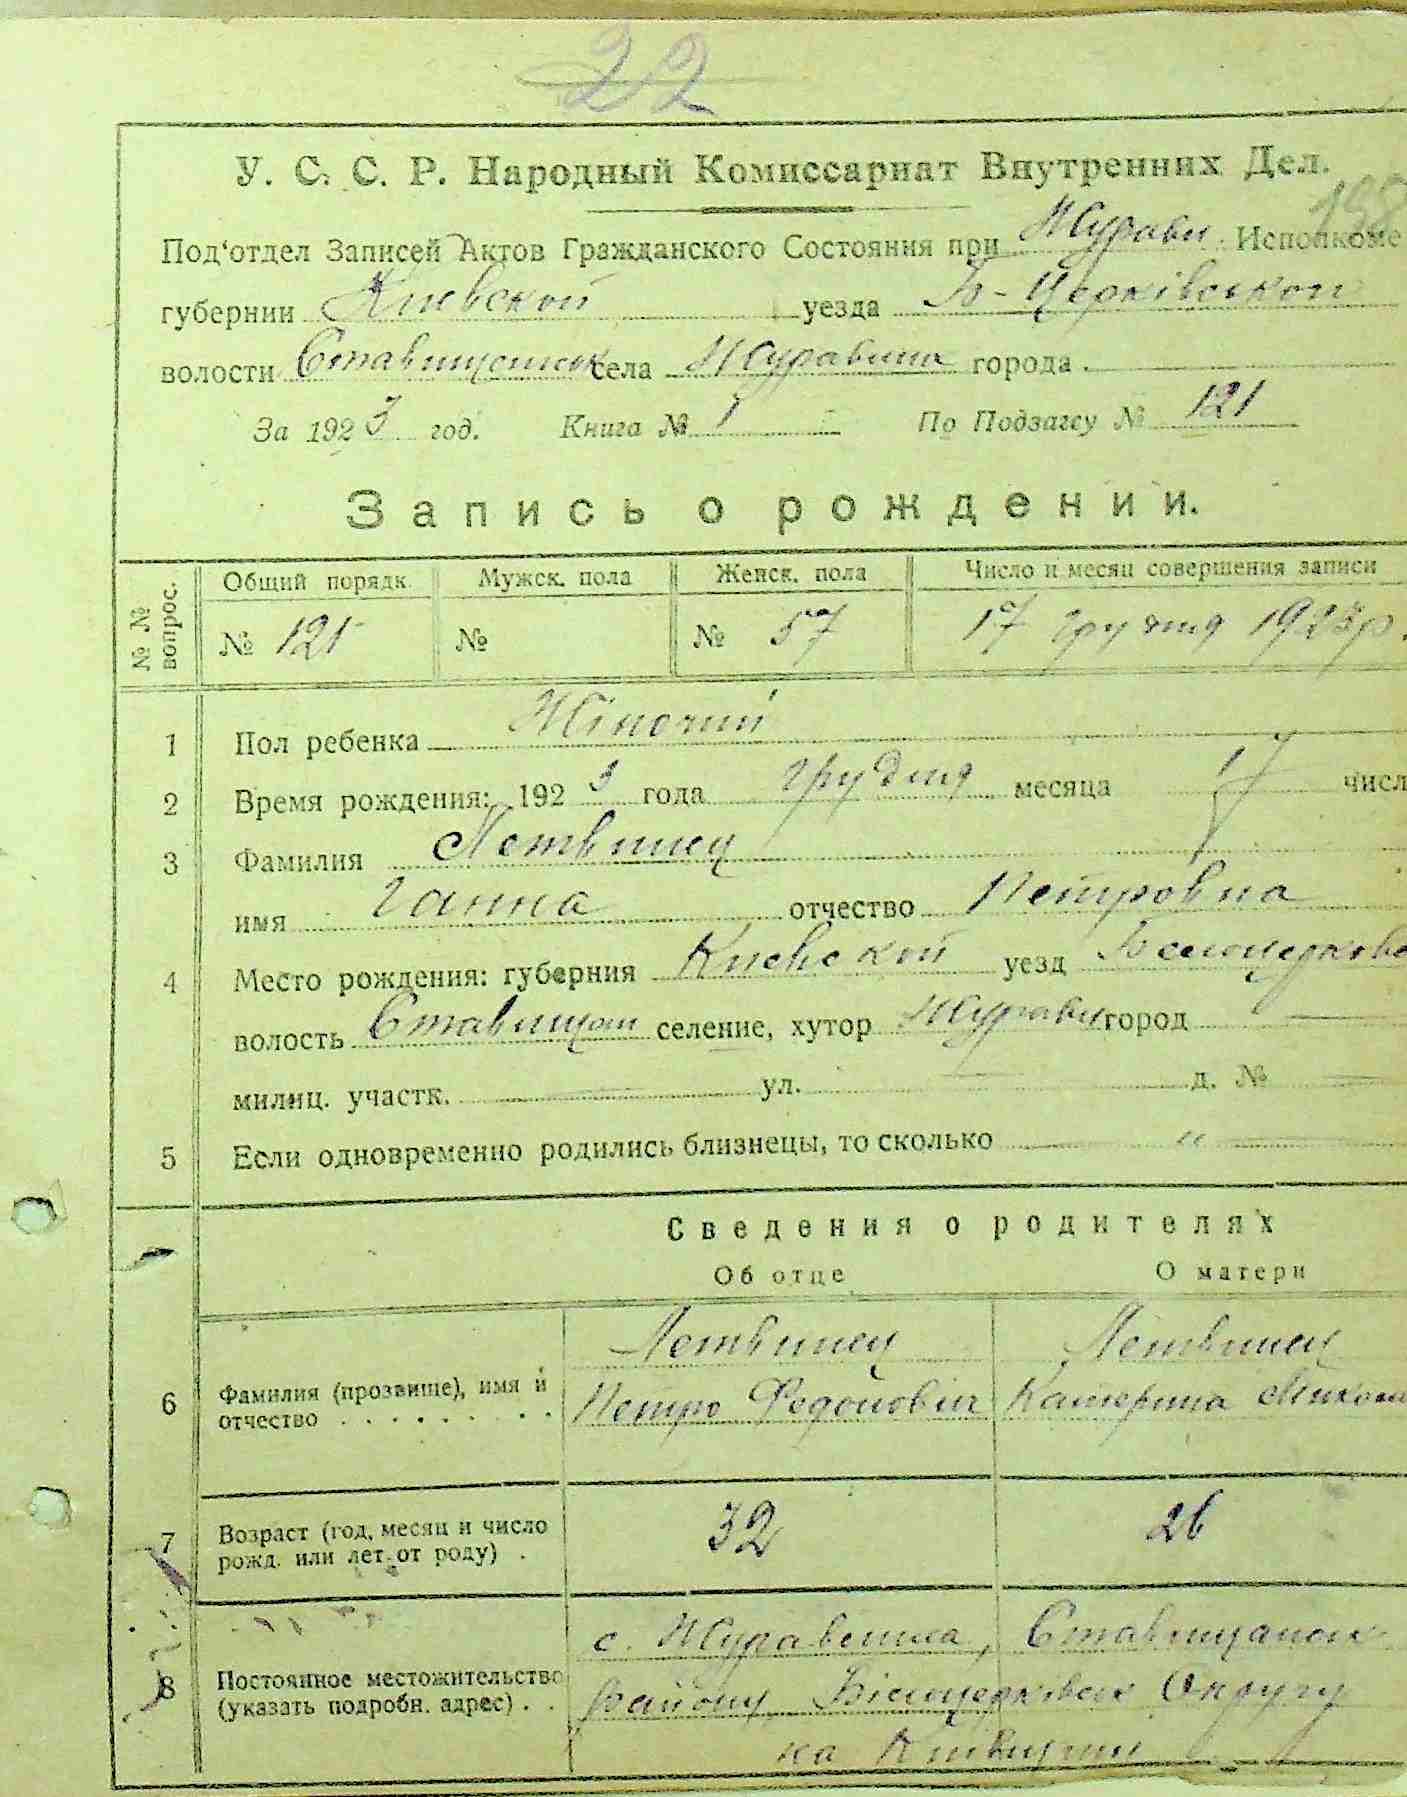 22
У. С. С. Р. Народный Комиссариат Внутренних Дел.
198
Под'отдел Записей Актов Гражданского Состояния при Журави Исполкоме
губернии Киевской уезда Б-Церківськой
волости села города
За 1923 год. Книга № 1 По Подзагсу № 121
Запись о рождении.
№ № вопрос. Общий порядк. Мужск. пола Женск. пола Число и месяц совершения записи
№ 121 № № 57 17 грудня 1923 р.
1 Пол ребенка Жіночий
2 Время рождения: 1923 года грудня месяца 17 числ
3 Фамилия Летвинец
имя Ганна отчество Петровна
4 Место рождения: губерния Киевской уезд Белоцерковс
волость Ставищан селение, хутор Журави город
милиц. участк. ул. д. №
5 Если одновременно родились близнецы, то сколько "
Сведения о родителях
Об отце О матери
Летвинец Летвинец
6 Фамилия (прозвище), имя и отчество Петро Катерина
7 Возраст (год, месяц и число рожд. или лет от роду) 32 26
с. Ставищанськ
8 Постоянное местожительство (указать подробн. адрес) Району Білоцерківськ Округу
на Київщині